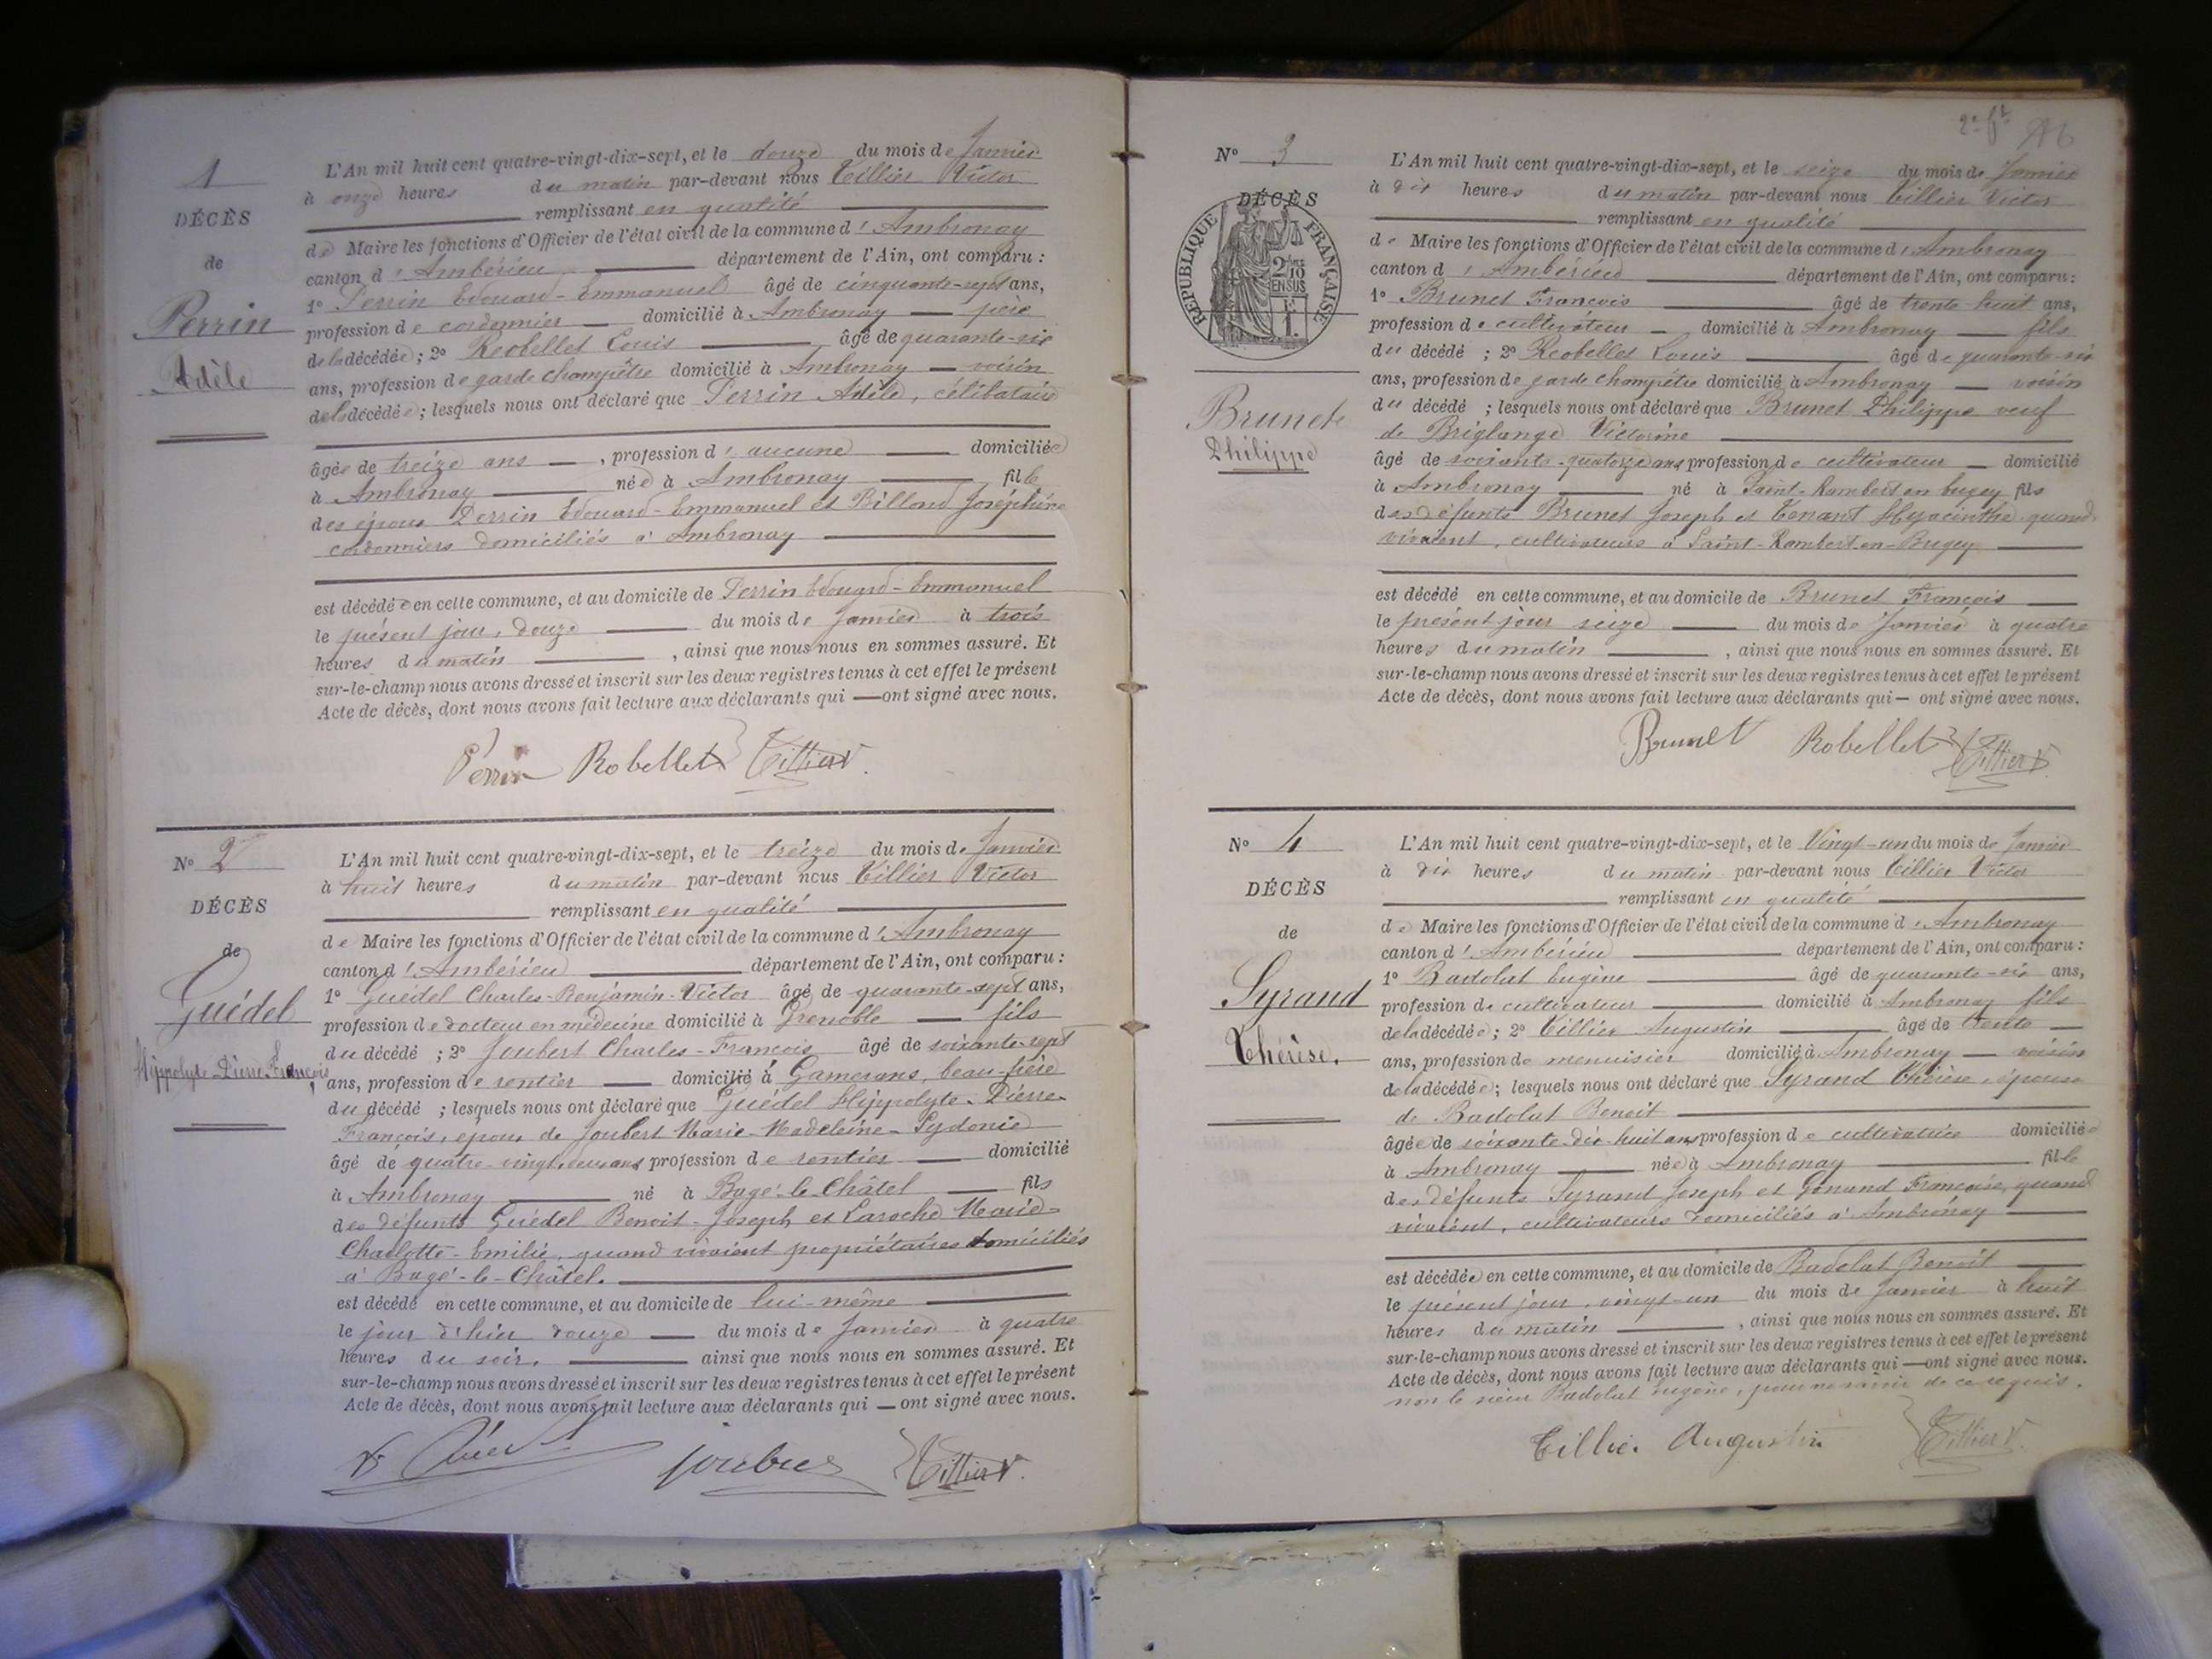 1
DÉCÈS
de
Perrin
Adèle
L'An mil huit cent quatre-vingt-dix-sept, et le douze du mois de Janvier
à onze heures du matin par-devant nous Tillier Victor
remplissant en qualité
de Maire les fonctions d'Officier de l'état civil de la commune d'Ambronay
canton d'Ambérieu département de l'Ain, ont comparu :
1º Perrin Edouard-Emmanuel âgé de cinquante-sept ans,
profession de cordonnier domicilié à Ambronay père
de la décédée ; 2º Reobellet Louis âgé de quarante-six
ans, profession de garde champêtre domicilié à Ambronay voisin
de la décédée ; lesquels nous ont déclaré que Perrin Adèle, célibataire
âgée de treize ans , profession d'aucune domiciliée
à Ambronay née à Ambronay fille
des époux Perrin Edouard-Emmanuel et Billond Joséphine
cordonniers domiciliés à Ambronay
est décédée en cette commune, et au domicile de Perrin Edouard-Emmanuel
le présent jour, douze du mois de Janvier à trois
heures du matin , ainsi que nous nous en sommes assuré. Et
sur-le-champ nous avons dressé et inscrit sur les deux registres tenus à cet effet le présent
Acte de décès, dont nous avons fait lecture aux déclarants qui — ont signé avec nous.
Perrin Robellet Tillier V.
Nº 2
DÉCÈS
de
Guédel
Hippolyte Pierre François
L'An mil huit cent quatre-vingt-dix-sept, et le treize du mois de Janvier
à huit heures du matin par-devant nous Tillier Victor
remplissant en qualité
de Maire les fonctions d'Officier de l'état civil de la commune d'Ambronay
canton d'Ambérieu département de l'Ain, ont comparu :
1º Guédel Charles-Benjamin-Victor âgé de quarante-sept ans,
profession de docteur en médecine domicilié à Grenoble fils
du décédé ; 2º Joubert Charles-François âgé de soixante-sept
ans, profession de rentier domicilié à Gamerans, beau-frère
du décédé ; lesquels nous ont déclaré que Guédel Hippolyte-Pierre-
François, époux de Joubert Marie-Madeleine-Sydonie
âgé de quatre-vingt-deux ans profession de rentier domicilié
à Ambronay né à Bagé-le-Châtel fils
des défunts Guédel Benoit-Joseph et Laroche Marie-
Charlotte-Emilie, quand vivaient propriétaires domiciliés
à Bagé-le-Châtel.
est décédé en cette commune, et au domicile de lui-même
le jour d'hier douze du mois de Janvier à quatre
heures du soir, ainsi que nous nous en sommes assuré. Et
sur-le-champ nous avons dressé et inscrit sur les deux registres tenus à cet effet le présent
Acte de décès, dont nous avons fait lecture aux déclarants qui — ont signé avec nous.
Joubert Tillier V.
Nº 3
DÉCÈS
REPUBLIQUE FRANÇAISE
2/10 EN SUS
F 1.
Brunet
Philippe
L'An mil huit cent quatre-vingt-dix-sept, et le seize du mois de Janvier
à dix heures du matin par-devant nous Tillier Victor
remplissant en qualité
de Maire les fonctions d'Officier de l'état civil de la commune d'Ambronay
canton d'Ambérieu département de l'Ain, ont comparu :
1º Brunet François âgé de trente huit ans,
profession de cultivateur domicilié à Ambronay fils
du décédé ; 2º Reobellet Louis âgé de quarante-six
ans, profession de garde champêtre domicilié à Ambronay voisin
du décédé ; lesquels nous ont déclaré que Brunet Philippe veuf
de Briglange Victorine
âgé de soixante-quatorze ans profession de cultivateur domicilié
à Ambronay né à Saint-Rambert en bugey fils
des défunts Brunet Joseph et Tenant Hyacinthe quand
vivaient, cultivateurs à Saint-Rambert-en-Bugey
est décédé en cette commune, et au domicile de Brunet François
le présent jour seize du mois de Janvier à quatre
heures du matin , ainsi que nous nous en sommes assuré. Et
sur-le-champ nous avons dressé et inscrit sur les deux registres tenus à cet effet le présent
Acte de décès, dont nous avons fait lecture aux déclarants qui — ont signé avec nous.
Brunet Robellet Tillier V.
Nº 4
DÉCÈS
de
Syrand
Thérèse.
L'An mil huit cent quatre-vingt-dix-sept, et le Vingt-un du mois de Janvier
à dix heures du matin par-devant nous Tillier Victor
remplissant en qualité
de Maire les fonctions d'Officier de l'état civil de la commune d'Ambronay
canton d'Ambérieu département de l'Ain, ont comparu :
1º Badolut Eugène âgé de quarante-six ans,
profession de cultivateur domicilié à Ambronay fils
de la décédée ; 2º Tillier Augustin âgé de trente
ans, profession de menuisier domicilié à Ambronay voisin
de la décédée ; lesquels nous ont déclaré que Syrand Thérèse, épouse
de Badolut Benoit
âgée de soixante-dix-huit ans profession de cultivatrice domiciliée
à Ambronay née à Ambronay fille
des défunts Syrand Joseph et Gonand Françoise, quand
vivaient, cultivateurs domiciliés à Ambronay
est décédée en cette commune, et au domicile de Badolut Benoit
le présent jour, vingt-un du mois de Janvier à huit
heures du matin , ainsi que nous nous en sommes assuré. Et
sur-le-champ nous avons dressé et inscrit sur les deux registres tenus à cet effet le présent
Acte de décès, dont nous avons fait lecture aux déclarants qui — ont signé avec nous.
non le sieur Badolut Eugène, pour ne savoir de ce requis.
Tillier Augustin Tillier V.